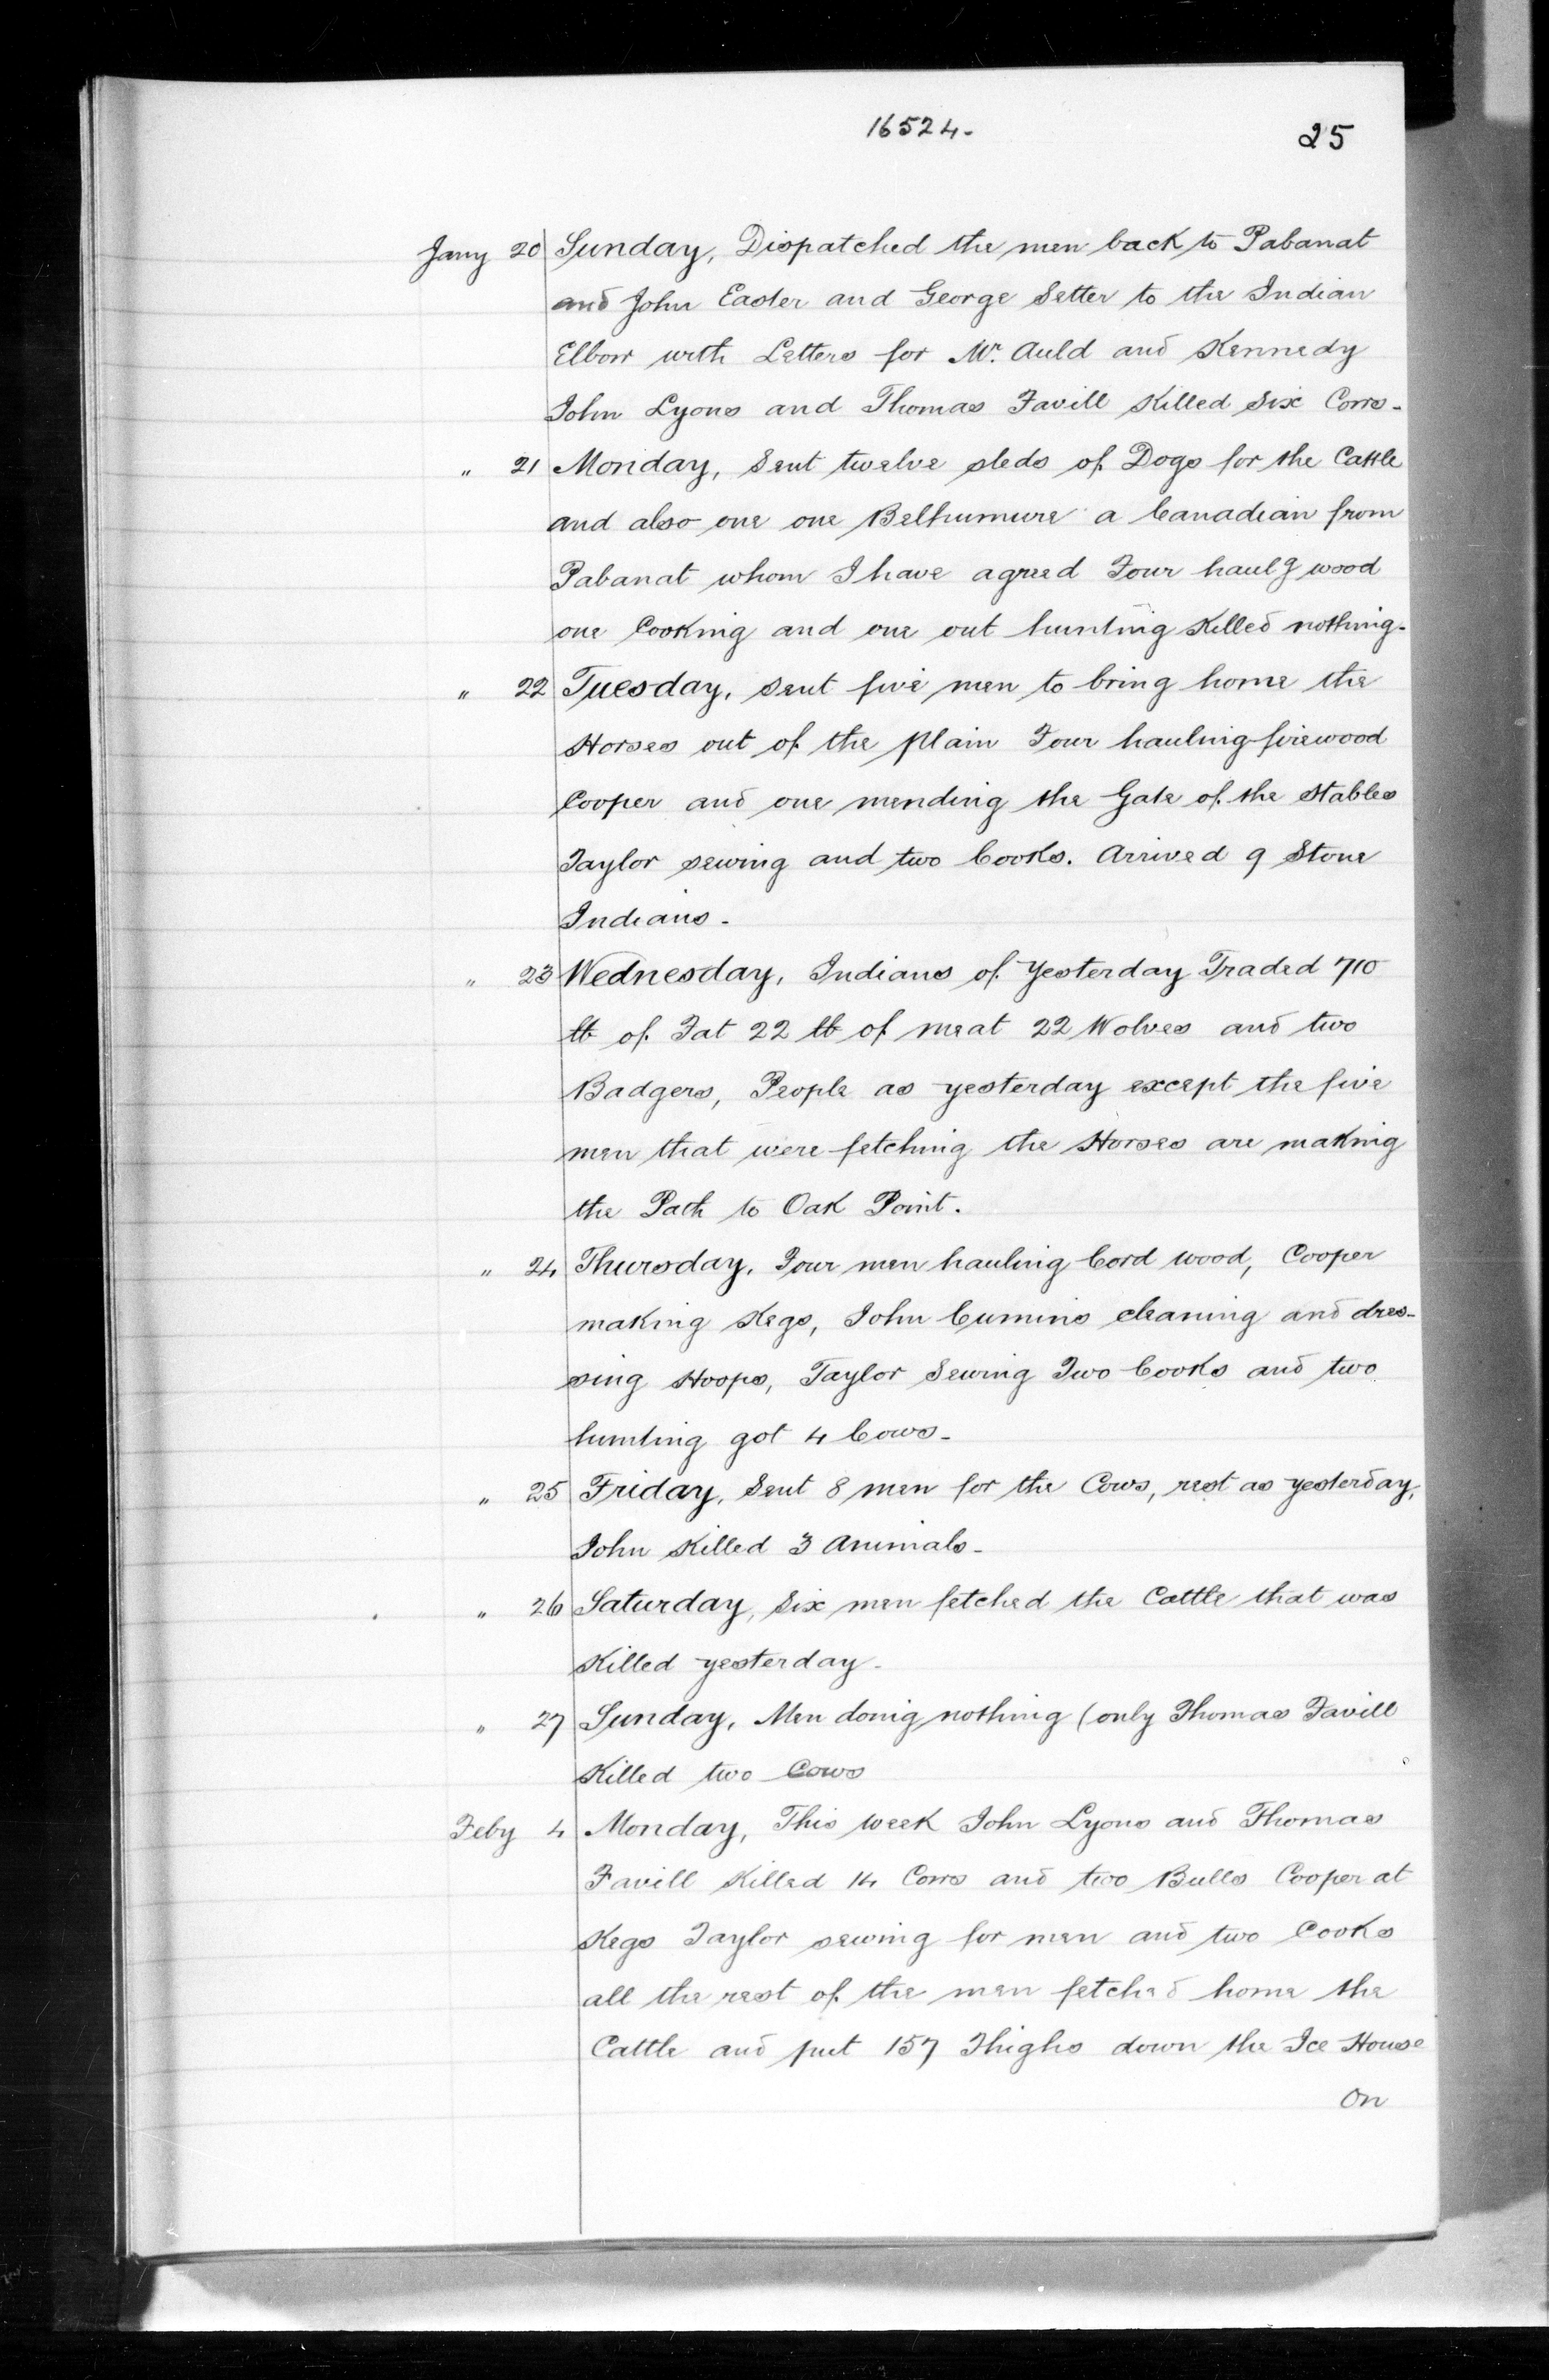 16524-
25
Jany 20 Sunday, Dispatched the men back to Pabanat
and John Easter and George Setter to the Indian
Elbow with Letters for Mr. Auld and Kennedy
John Lyons and Thomas Favill Killed Six Cows-
" 21 Monday, Sent twelve sleds of Dogs for the Cattle
and also one one Belhumure a Canadian from
Pabanat whom I have agreed Four haulg wood
one Cooking and one out hunting Killed nothing-
" 22 Tuesday, sent five men to bring home the
Horses out of the plain Four hauling firewood
Cooper and one mending the Gate of the stables
Taylor sewing and two Cooks. Arrived 9 Stone
Indians-
" 23 Wednesday, Indians of Yesterday Traded 710
lb of Fat 22 lb of meat 22 Wolves and two
Badgers, People as yesterday except the five
men that were fetching the Horses are making
the Path to Oak Point.
" 24 Thursday, Four men hauling Cord wood, Cooper
making Kegs, John Cumins cleaning and dres-
sing Hoops, Taylor Sewing Two Cooks and two
hunting got 4 Cows-
" 25 Friday, Sent 8 men for the Cows, rest as yesterday,
John Killed 3 Animals-
" 26 Saturday, Six men fetched the Cattle that was
Killed yesterday-
" 27 Sunday, Men doing nothing (only Thomas Favill
Killed two Cows
Feby 4 Monday, This week John Lyons and Thomas
Favill Killed 14 Cows and two Bulls Cooper at
Kegs Taylor sewing for men and two Cooks
all the rest of the men fetched home the
Cattle and put 157 Thighs down the Ice House
On